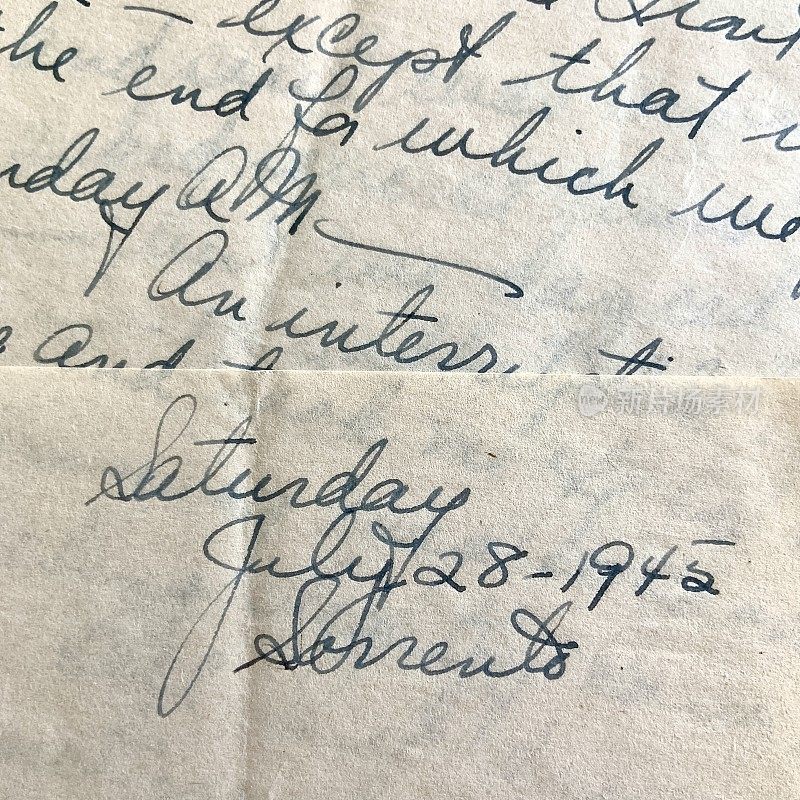 — except that
the end for which we
day AM
An
and
new 新片场素材
Saturday
July 28-1945
Sorrento